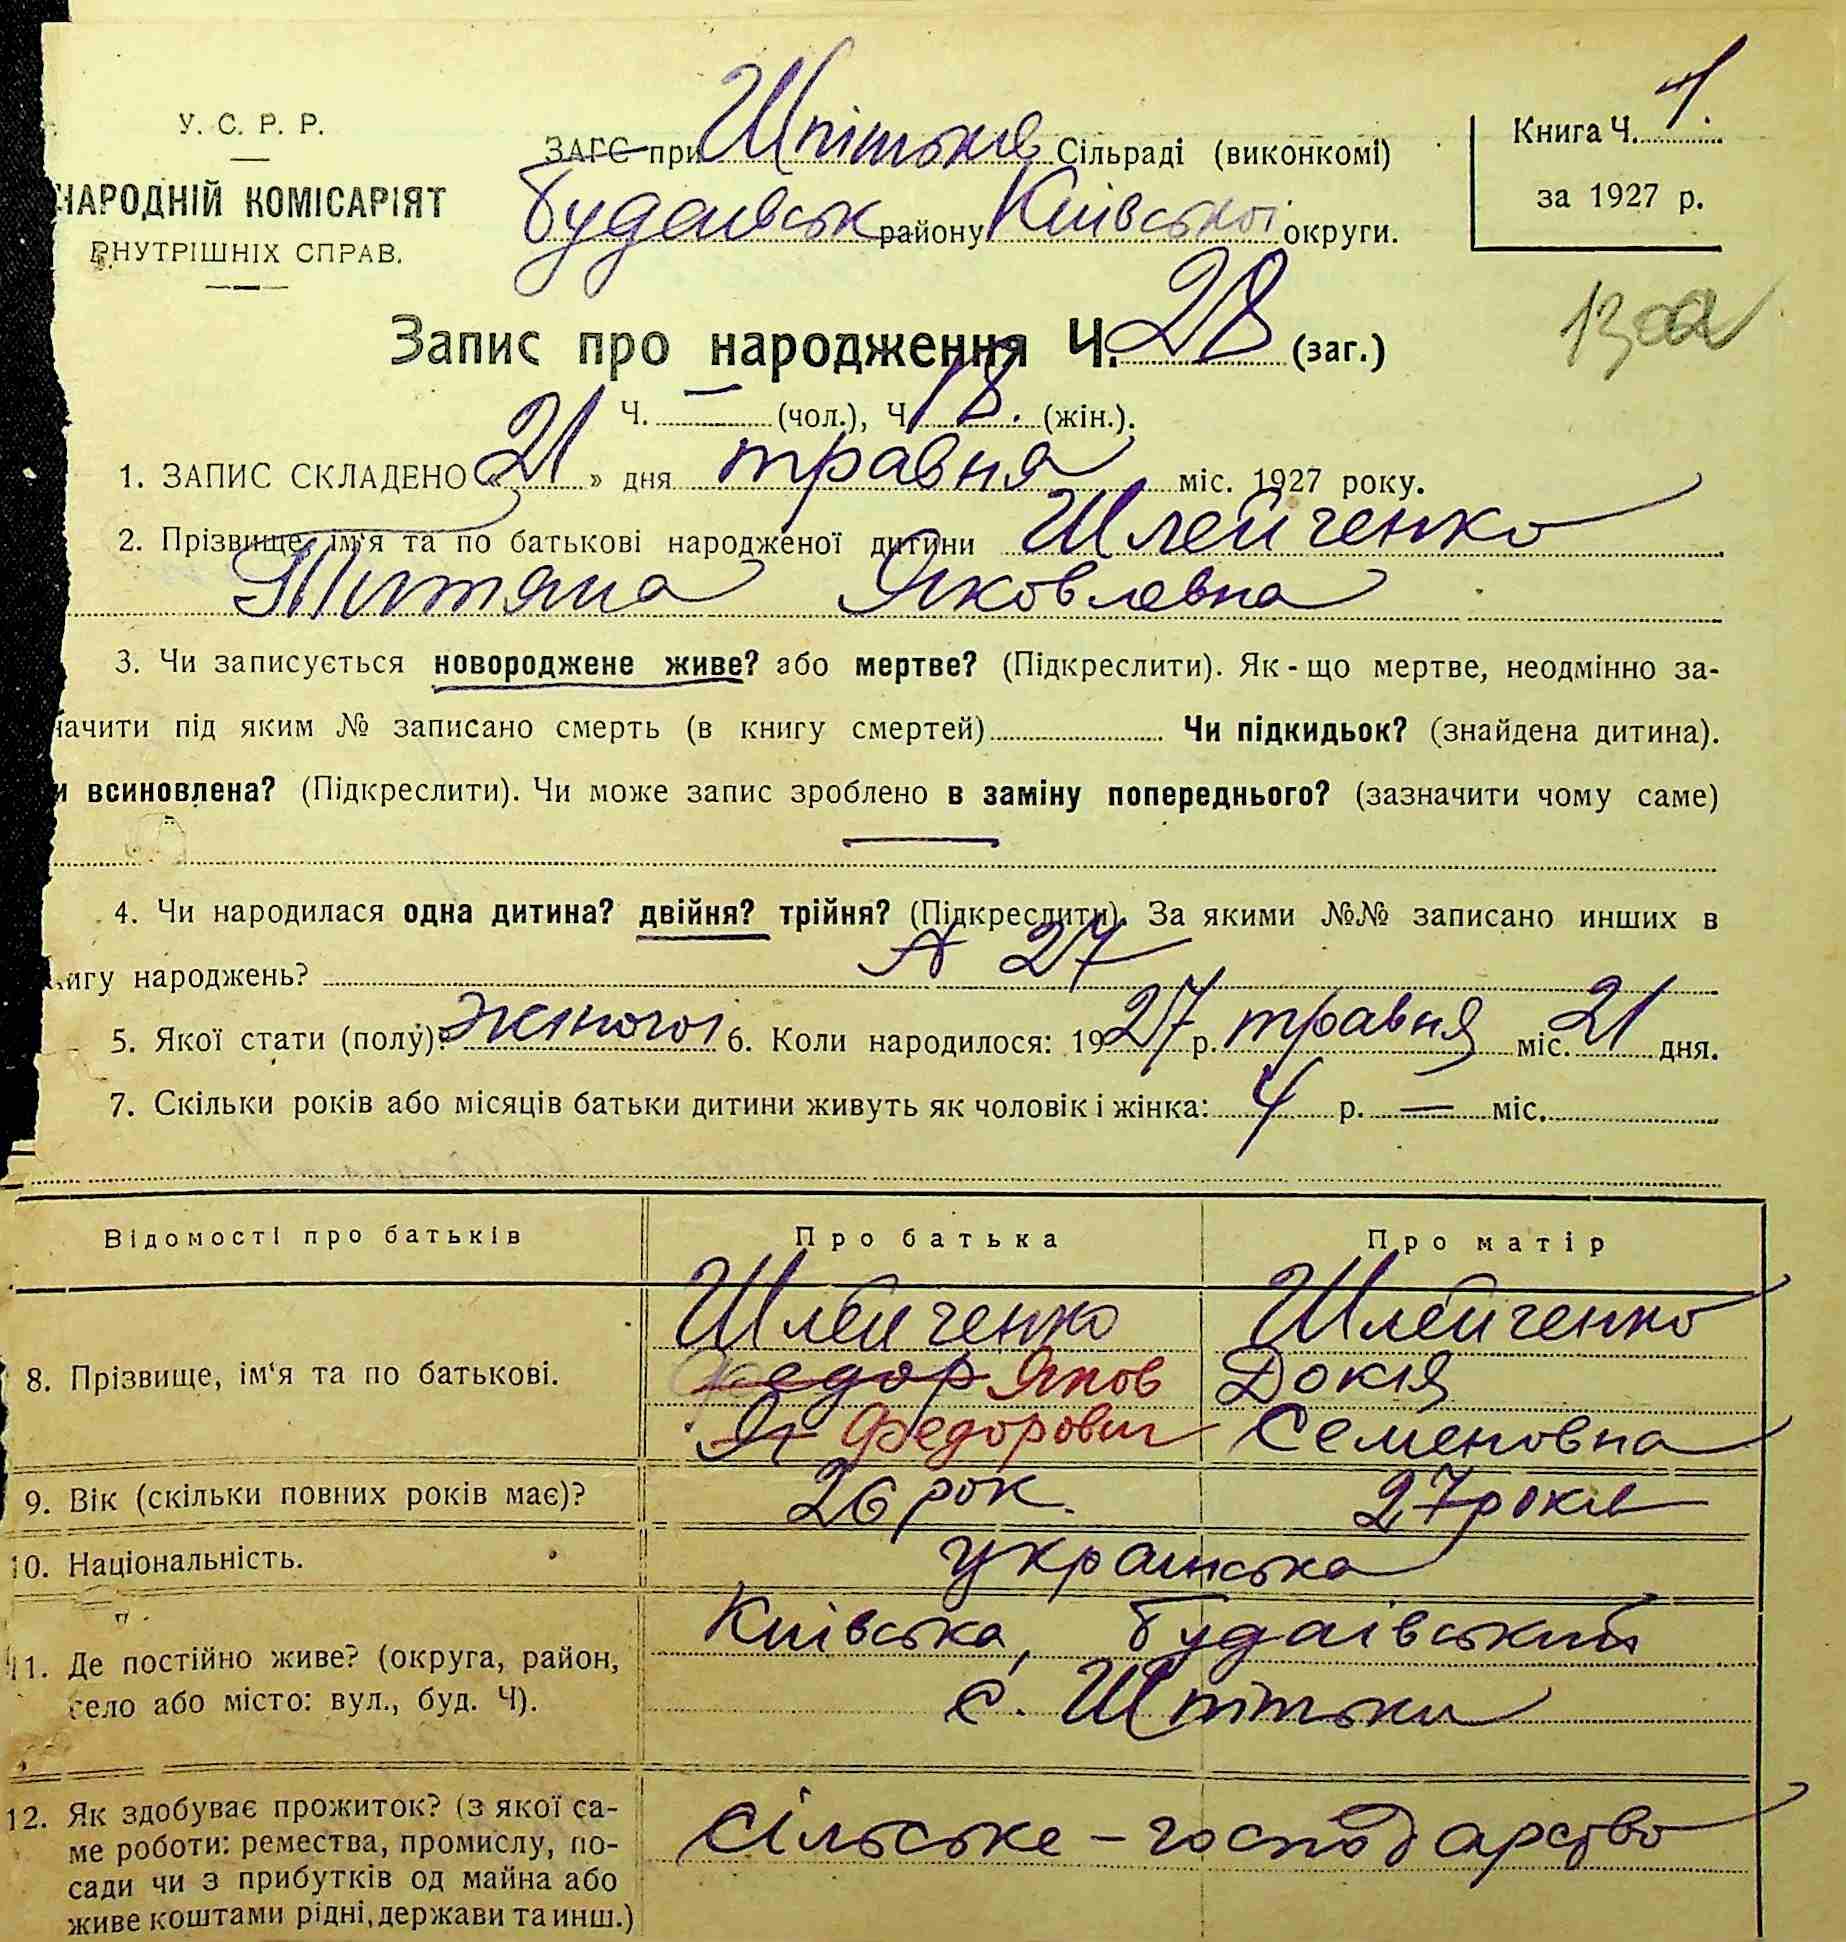 У. С. Р. Р.
НАРОДНІЙ КОМІСАРІЯТ
ВНУТРІШНІХ СПРАВ.
ЗАГС при Шпітьків Сільраді (виконкомі)
Будаївськ району Київської округи.
Книга Ч. 1.
за 1927 р.
Запис про народження Ч. 28 (заг.)
Ч. — (чол.), Ч. 18. (жін.).
1. ЗАПИС СКЛАДЕНО « 21 » дня травня міс. 1927 року.
2. Прізвище, ім'я та по батькові народженої дитини Шлейченко
Титяна Яковлевна
3. Чи записується новороджене живе? або мертве? (Підкреслити). Як-що мертве, неодмінно за-
начити під яким № записано смерть (в книгу смертей) Чи підкидьок? (знайдена дитина).
и всиновлена? (Підкреслити). Чи може запис зроблено в заміну попереднього? (зазначити чому саме)
—
4. Чи народилася одна дитина? двійня? трійня? (Підкреслити). За якими №№ записано инших в
нигу народжень? 27
5. Якої стати (полу)? жіночої 6. Коли народилося: 1927 р. травня міс. 21 дня.
7. Скільки років або місяців батьки дитини живуть як чоловік і жінка: 4 р. — міс.
Відомості про батьків Про батька Про матір
8. Прізвище, ім'я та по батькові. Шлейченко Шлейченко
Федор Яков Докія
Як Федорович Семеновна
9. Вік (скільки повних років має)? 26 рок. 27 років
10. Національність. українська
11. Де постійно живе? (округа, район, село або місто: вул., буд. Ч). Київська, Будаївський
с. Шпітьки
12. Як здобуває прожиток? (з якої са-
ме роботи: ремества, промислу, по-
сади чи з прибутків од майна або
живе коштами рідні, держави та инш.) сільське-господарство